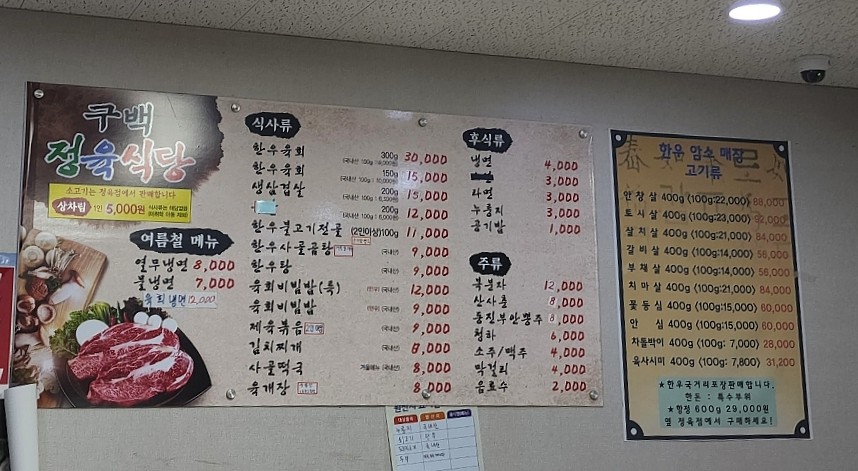 구백
정육식당
소고기는 정육점에서 판매합니다
상차림 1인 5,000원
여름철 메뉴
열무냉면 8,000
물냉면 7,000
육회냉면 12,000
식사류
한우육회 300g 30,000
한우육회 150g 15,000
생삼겹살 200g 15,000
200g 12,000
한우불고기전골 (2인이상)100g 11,000
한우사골곰탕 (국내산) 9,000
한우탕 (국내산) 9,000
육회비빔밥(특) 12,000
육회비빔밥 9,000
제육볶음 (국내산) 9,000
김치찌개 (국내산) 8,000
사골떡국 겨울메뉴 (국내산) 8,000
육개장 (국내산) 8,000
후식류
냉면 4,000
3,000
라면 3,000
누룽지 3,000
공기밥 1,000
주류
복분자 12,000
산사춘 8,000
동진부안뽕주 8,000
청하 6,000
소주/맥주 4,000
막걸리 4,000
음료수 2,000
한우 암소 매장
고기류
안창살 400g (100g:22,000) 88,000
토시살 400g (100g:23,000) 92,000
살치살 400g (100g:21,000) 84,000
갈비살 400g (100g:14,000) 56,000
부채살 400g (100g:14,000) 56,000
치마살 400g (100g:21,000) 84,000
꽃등심 400g (100g:15,000) 60,000
안심 400g (100g:15,000) 60,000
차돌박이 400g (100g: 7,000) 28,000
육사시미 400g (100g: 7,800) 31,200
★한우국거리포장판매합니다.
한돈 : 특수부위
★항정 600g 29,000원
옆 정육점에서 구매하세요!